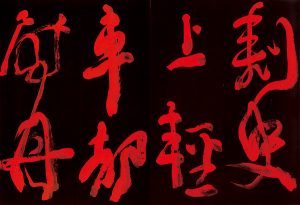 刺史
上輕
車都
尉丹